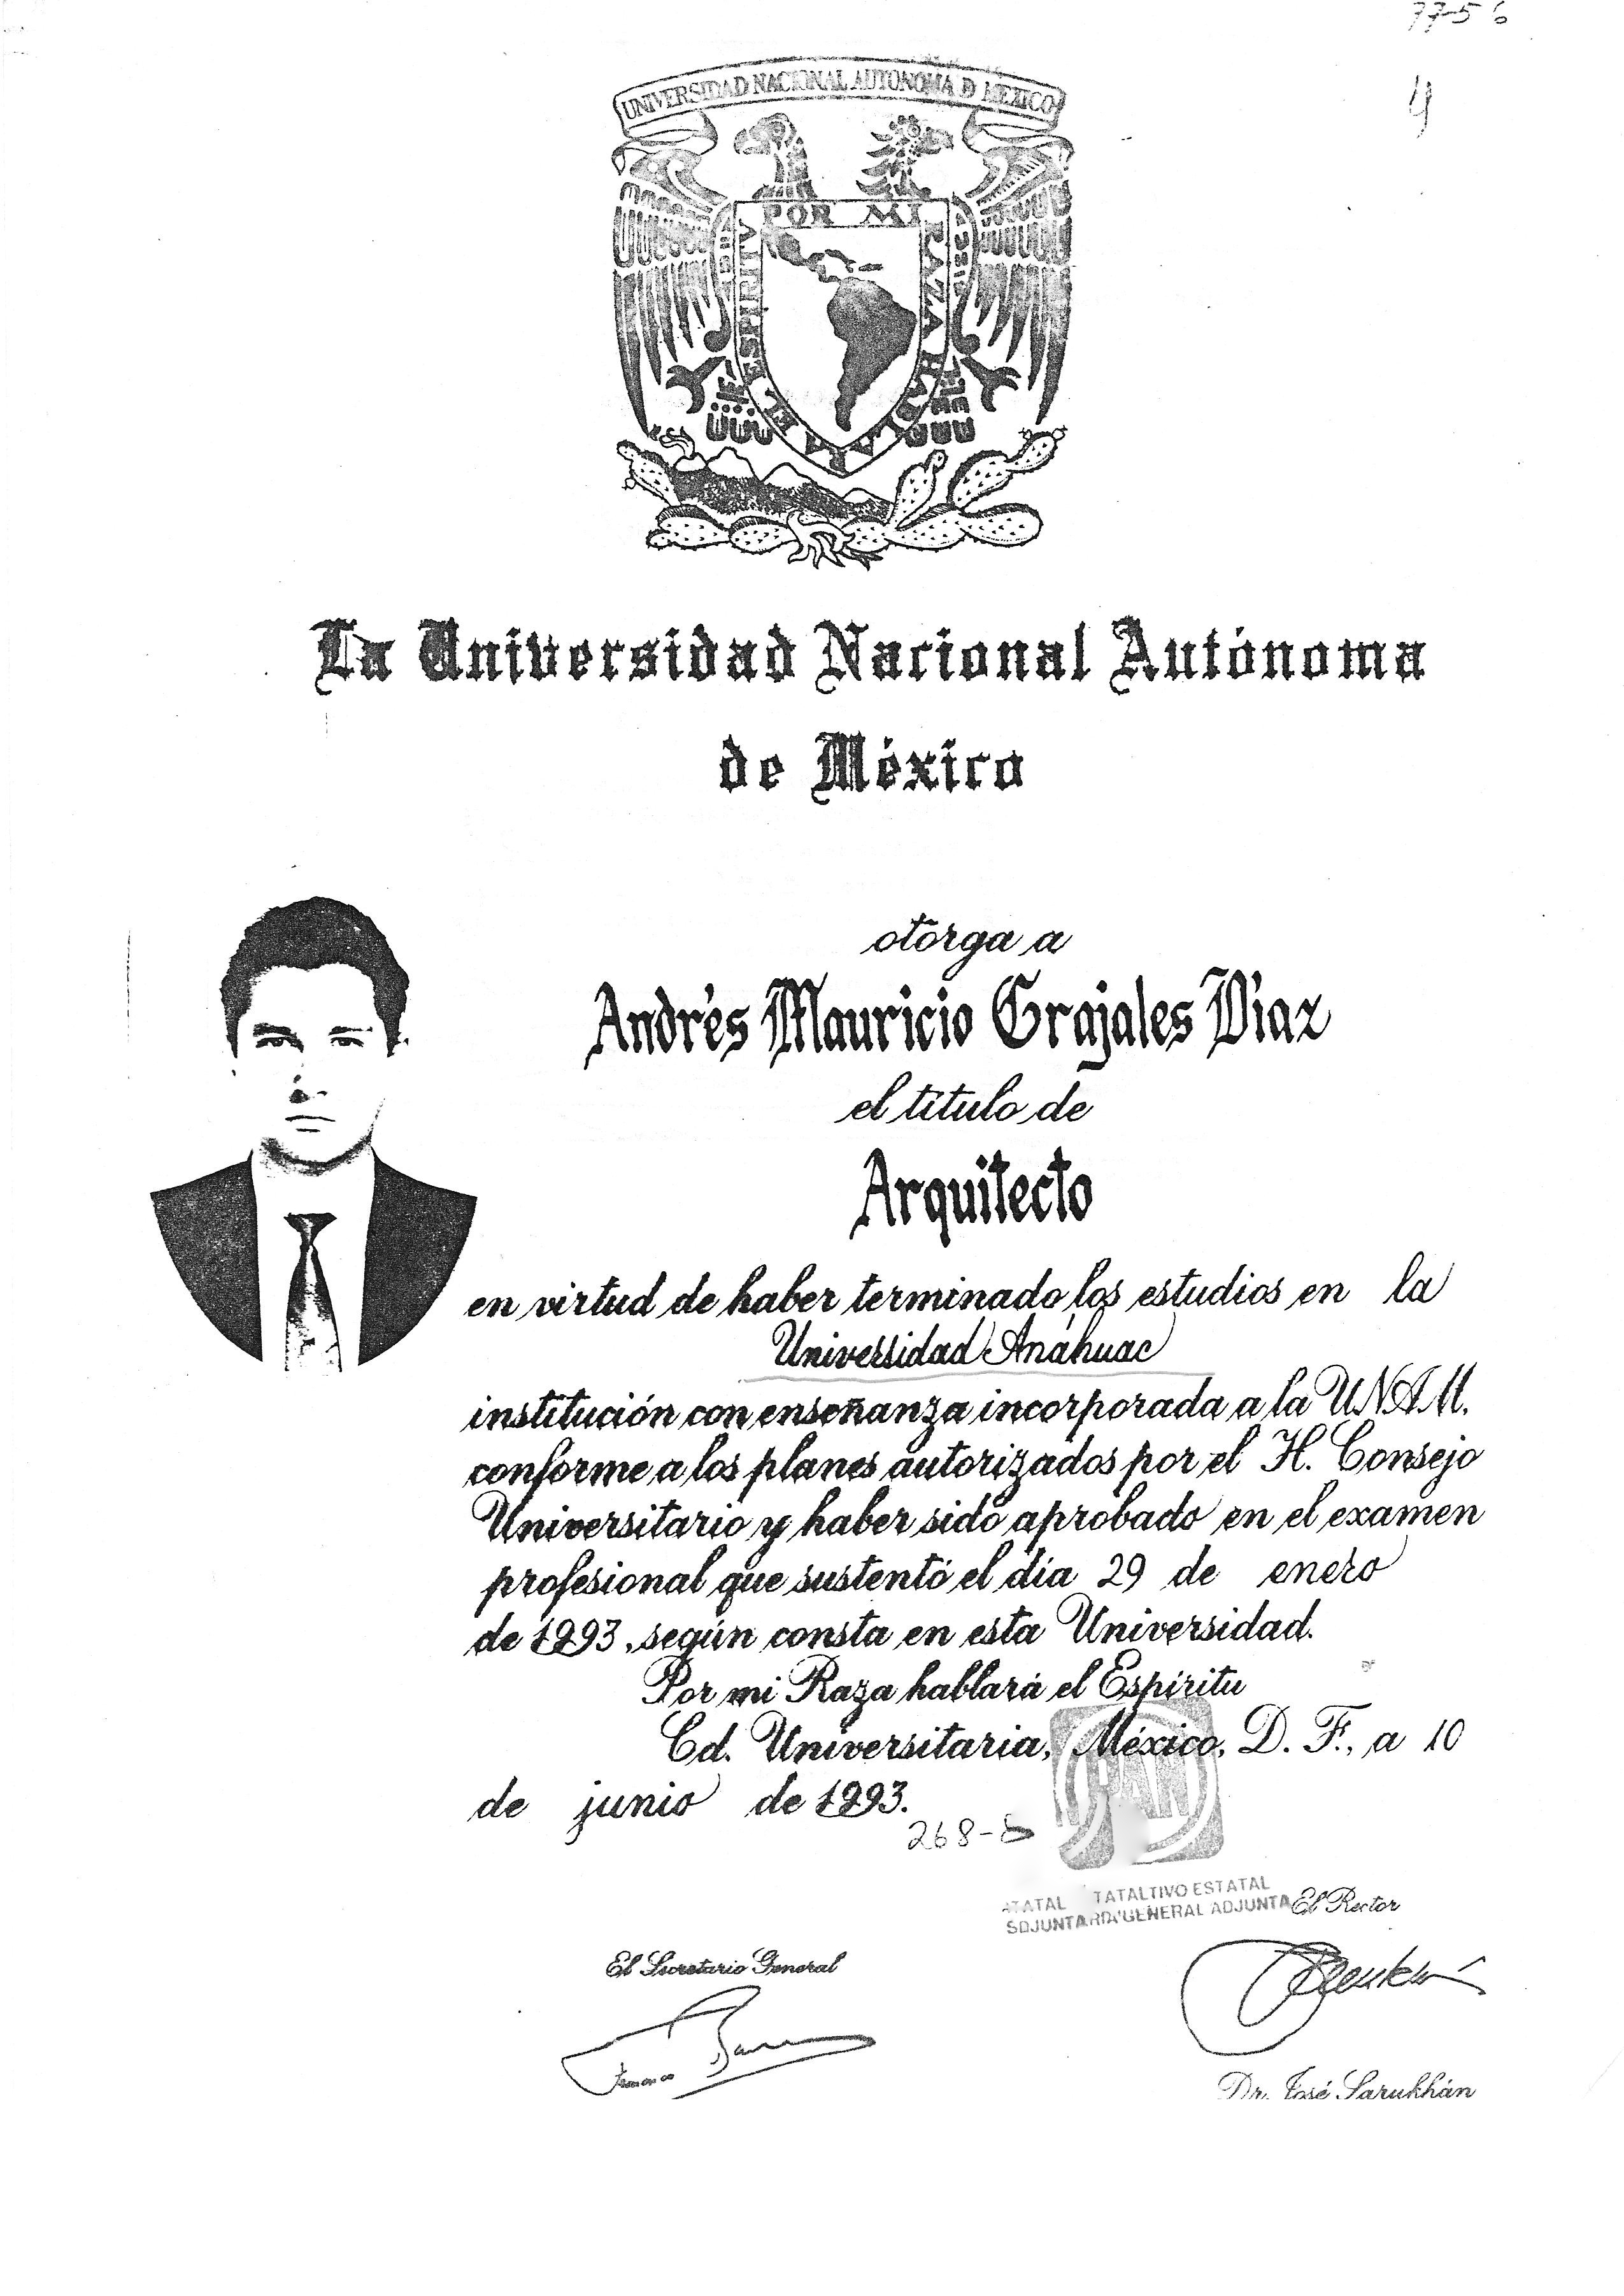 77-56
4
UNIVERSIDAD NACIONAL AUTONOMA D MEXICO
POR MI RAZA HABLARA EL ESPIRITU
La Universidad Nacional Autónoma
de México
otorga a
Andrés Mauricio Grajales Díaz
el título de
Arquitecto
en virtud de haber terminado los estudios en la
Universidad Anáhuac
institución con enseñanza incorporada a la U.N.A.M.
conforme a los planes autorizados por el H. Consejo
Universitario y haber sido aprobado en el examen
profesional que sustentó el día 29 de enero
de 1993, según consta en esta Universidad.
Por mi Raza hablará el Espíritu
Cd. Universitaria, México, D. F., a 10
de junio de 1993.
PAN
268-
TATAL TATALTIVO ESTATAL
GENERAL ADJUNTA
El Rector
El Secretario General
Dr. José Sarukhán